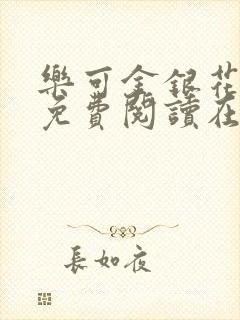 樂可金銀花
免費閱讀在
長如夜